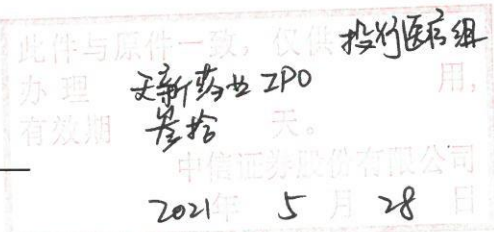 此件与原件一致，仅供 投行医疗组
办理 天新药业IPO 用，
有效期 叁拾 天。
中信证券股份有限公司
2021年 5月 28日